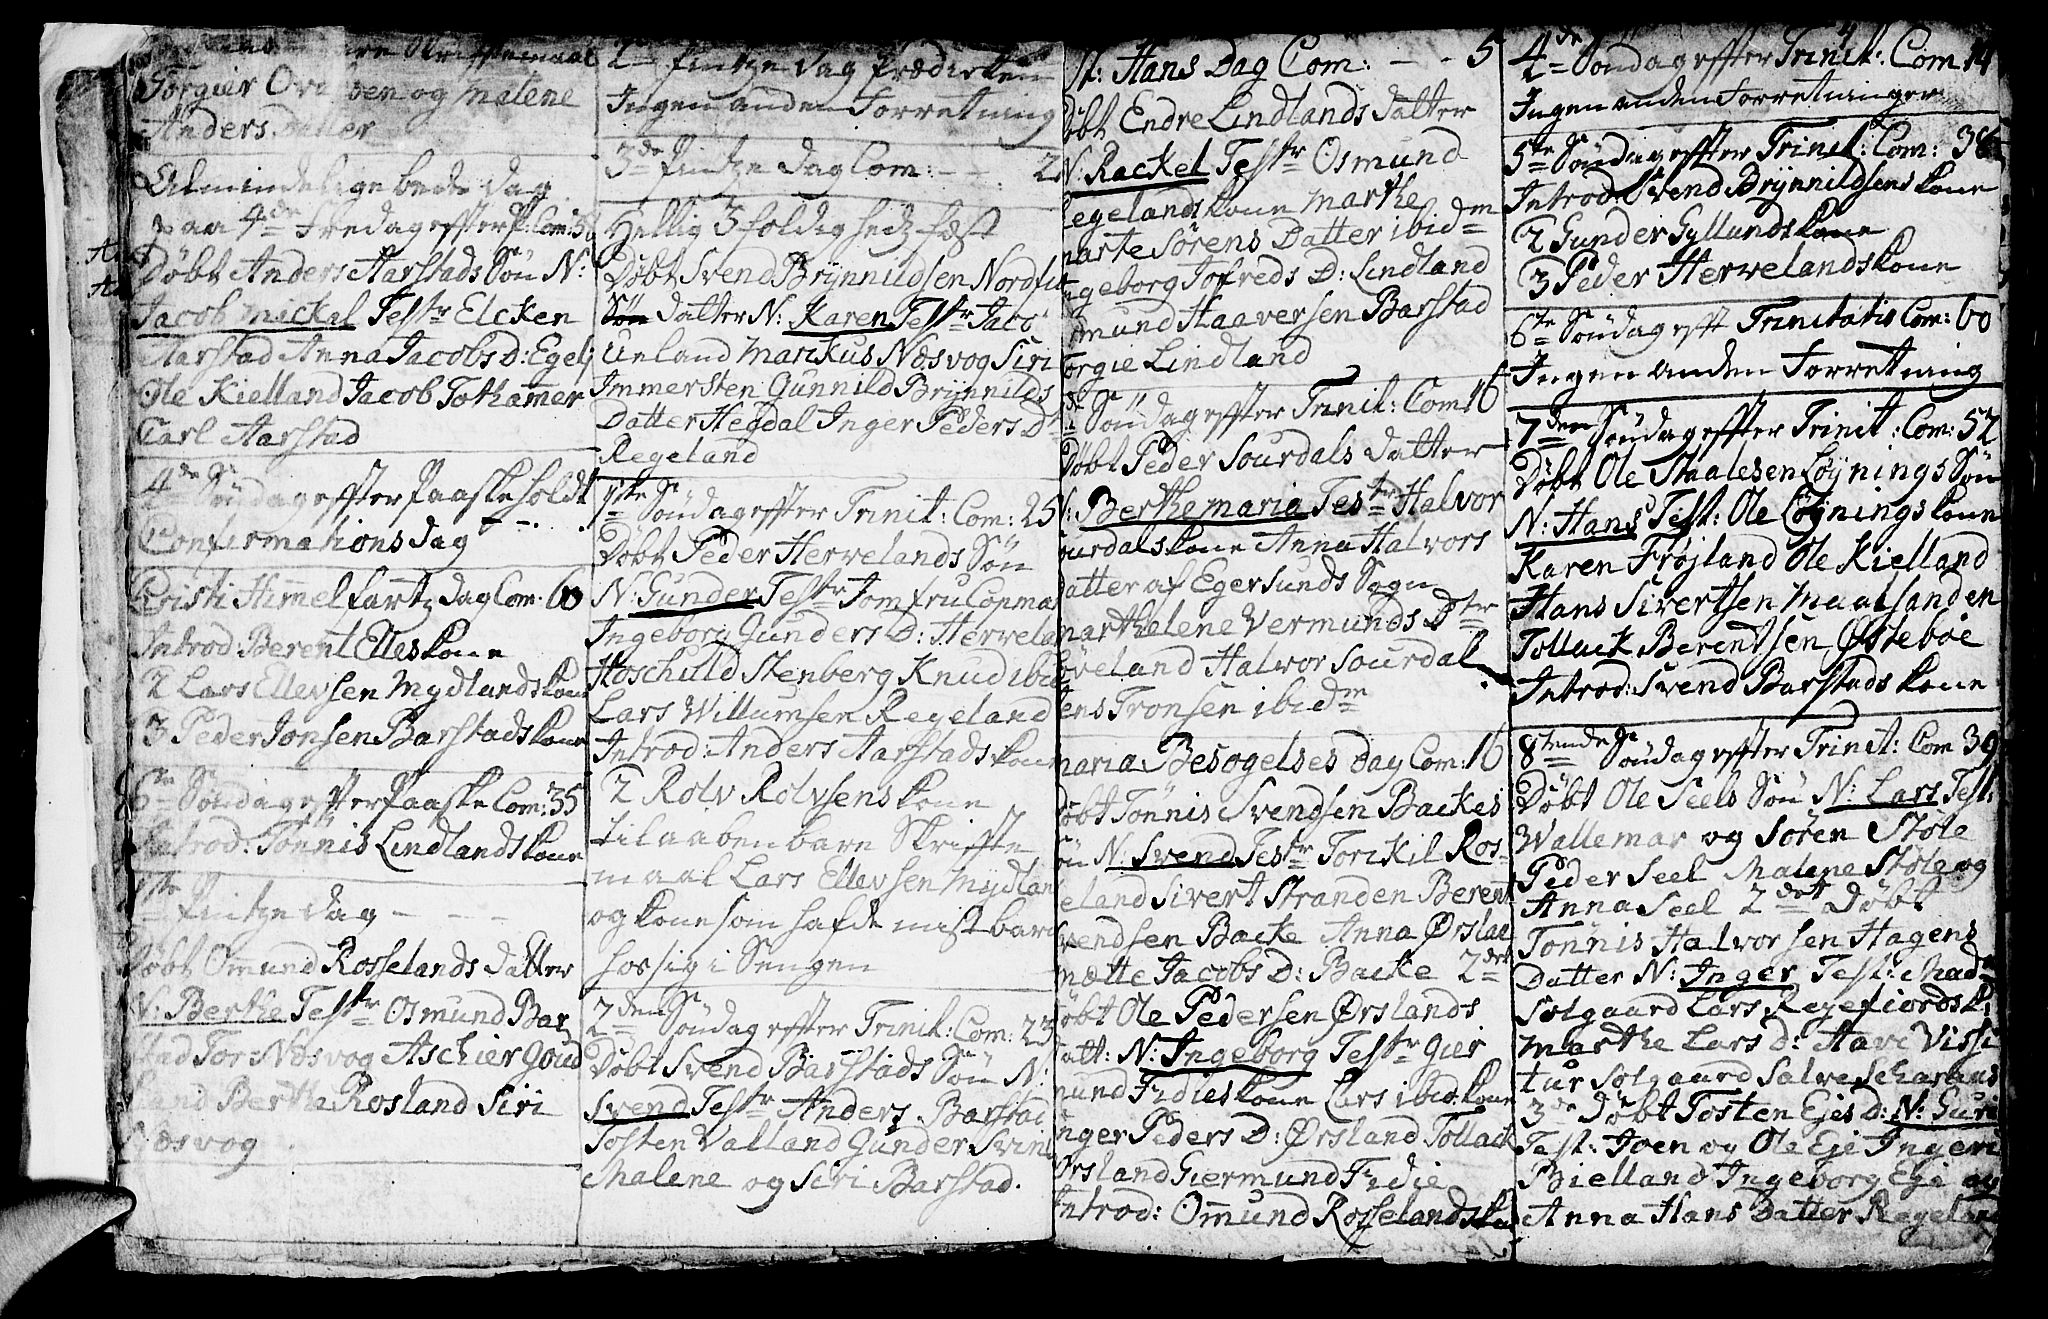 Skriftemaal
Torgier og Malene
Anders Datter
Almindelige bede dag
paa 4de Fredag effter P: Com: 58
Døbt Anders Aarstads Søn N:
Jacob Mickel Testr Elcken
Aarstad Anna Jacobs D: Egel
Ole Kielland Jacob Tothamer
Carl Aarstad
4de Søndag effter Paaske holdt
Confirmations dag - - .
Cristi Himmelfartz dag Com: 60
Introd: Berent Elles kone
2 Lars Ellevsen Mydlands kone
3 Peder Jonsen Barstads kone
6te Søndag effter Paaske Com: 35
Introd: Tønnis Lindlands kone
1ste Pintze dag - - -
Døbt Omund Rosselands datter
N: Berthe Testr Osmund Bar
stad Tor Næsvog Aschier Goud
land Berthe Rosland Siri
Næsvog
2den Pintze dag Prædicken
Ingen anden Forretning
3de Pintze dag Com: - - . 2
Hellig 3 foldigheds fæst
Døbt Svend Brynnildsen Nordfi
Søn datter N: Karen Testr Jaco
Ueland Marckus Næsvog Siri
Immersten Gunnild Brynnilds
Datter Hegdal Inger Peders D
Regeland
1ste Søndag effter Trinit: Com: 25
Døbt Peder Herwelands Søn
N: Gunder Testr Jomfru Copma
Ingeborg Gunders D: Herwelan
Hoschuld Stenberg Knud ibid
Lars Willumsen Regeland
Introd: Anders Aarstads kone
2 Rolv Rolvsens kone
til aabenbare Skrifte
maal Lars Ellevsen Mydlan
og kone som hafde mist barn
hos sig i Sengen
2den Søndag effter Trinit: Com: 23
Døbt Svend Barstads Søn N:
Svend Testr Anders Barstad
Tosten Valland Gunder Svin
Malene og Siri Barstad.
St: Hans Dag Com: - - 5
Døbt Endre Lindlands datter
N: Rackel Testr Osmund
Regelands kone Marthe
Marte Sørens Datter ibidm
Ingeborg Tofreds D: Lindland
Omund Haaversen Barstad
Torgie Lindland
Søndag effter Trinit: Com 16
Døbt Peder Sourdals datter
N: Berthe Maria Testr Halvor
Sourdals kone Anna Halvors
Datter af Egersunds Sogn
Marthe Lene Vermunds Dtter
Halvor Sourdal
Jens Tronsen ibidm
Maria Besøgelses Dag Com: 16
Døbt Tønnis Svendsen Backes
Søn N: Svend Testr Torckil Ros
seland Sivert Stranden Berent
Svendsen Backe Anna Ørslan
Mætte Jacobs D: Backe 2det
Døbt Ole Pedersen Ørslands
Datt: N: Ingeborg Testr Gier
mund Fidies kone Lars ibid: kone
Inger Peders D: Ørsland Tollack
Ørsland Giermund Fidie
Introd: Omund Rosselands kone
4
4de Søndag effter Trinit: Com 14
Ingen anden Forretninger
5te Søndag effter Trinit: Com: 36
Introd: Svend Brynnildsens kone
2 Gunder Gyllunds kone
3 Peder Herwelands kone
6te Søndag efft Trinitatis Com: 60
Ingen anden Forretning
7den Søndag effter Trinit: Com: 52
Døbt Ole Staalesen Løynings Søn
N: Hans Test: Ole Løynings kone
Karen Frøjland Ole Kielland
Hans Sivertsen Maalsanden
Tollack Berentsen Østebøe
Introd: Svend Barstads kone
8tende Søndag effter Trinit: Com 39
Døbt Ole Seels Søn N: Lars Test:
Wallemar og Søren Støle
Peder Seel Malene Støle og
Anna Seel 2det Døbt
Tønnis Halvorsen Hagens
Datter N: Inger Test: Mad
Solgaard Lars Regefiords K
Marthe Lars D: Have Visse
tur Solgaard Salve Scharland
3de Døbt Tosten Ejes D: N: Guri
Test: Joen og Ole Eje Ingeri
Bielland Ingeborg Eje og
Anna Hans Datter Regeland